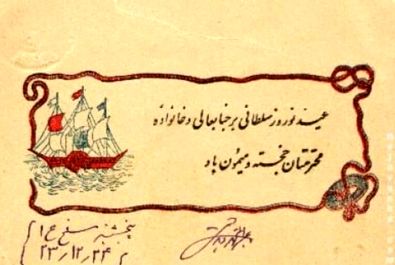 عید نوروز سلطانی بر جنابعالی و خانواده
محترمتان خجسته و میمون باد
پنجشنبه سلخ ع ۱
۲۳/۱۲/۲۴